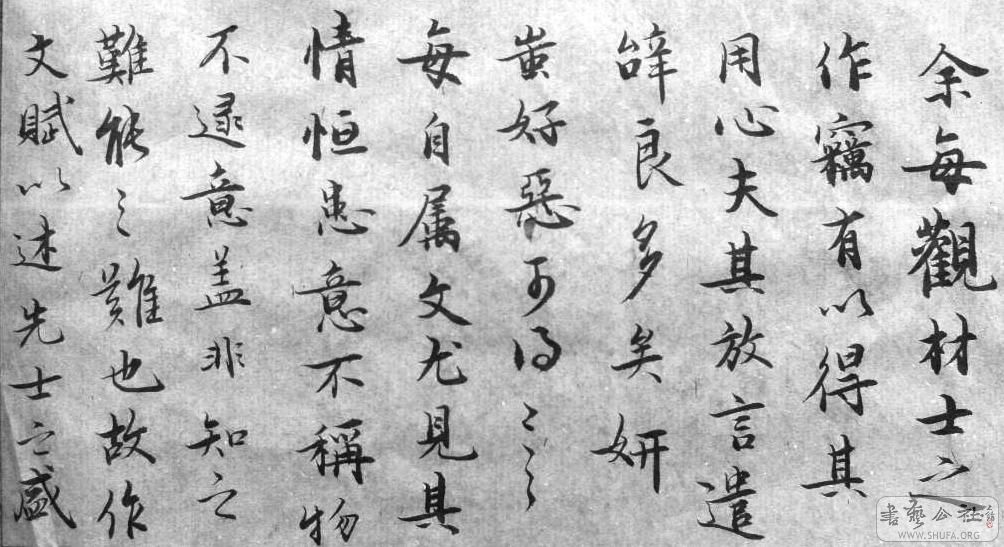 余每觀材士之
作竊有以得其
用心夫其放言遣
辝良多矣妍
蚩好惡可得而言
每自属文尤見其
情恒患意不稱物
不逮意盖非知之
難能之難也故作
文賦以述先士之盛
書藝公社
WWW.SHUFA.ORG